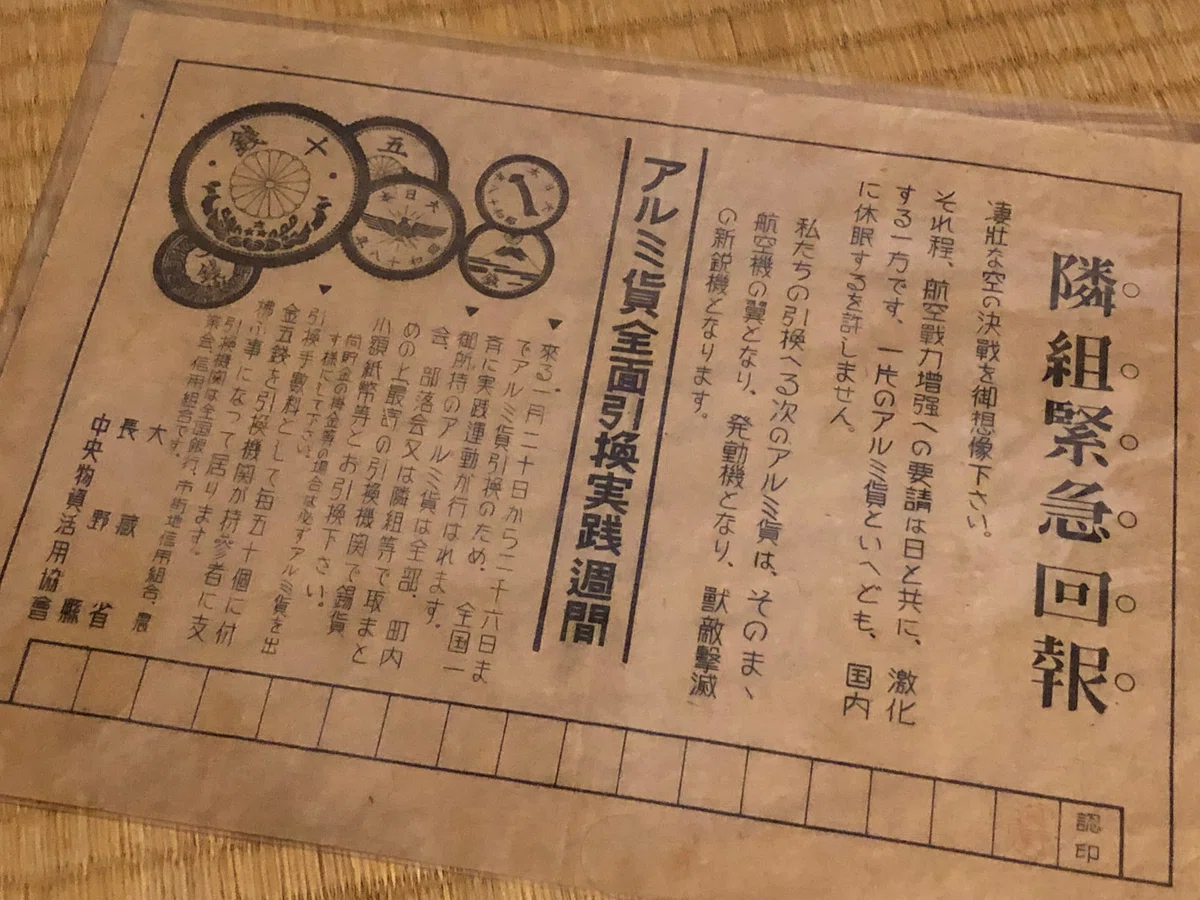 隣組緊急回報
凄壯な空の決戰を御想像下さい。
それ程、航空戰力増强への要請は日と共に、激化
する一方です、一片のアルミ貨といへども、国内
に休眠するを許しません。
私たちの引換へる次のアルミ貨は、そのまゝ
航空機の翼となり、発動機となり、獸敵擊滅
の新鋭機となります。
アルミ貨全面引換実践週間
▼來る一月二十日から二十六日ま
でアルミ貨引換のため、全国一
斉に実践運動が行はれます。
▼御所持のアルミ貨は全部、町内
会、部落会又は隣組等で取まと
めの上最寄の引換機関で錫貨
小額紙幣等とお引換下さい。
尚貯金の掛金等の場合は必ずアルミ貨を出
す様にして下さい。
▼引換手数料として毎五十個に付
金五銭を引換機関が持参者に支
拂ふ事になつて居ります。
引換機関は全国銀行、市街地信用組合、農
業会、信用組合です。
大藏省
長野縣
中央物資活用協會
十銭
五
大日本
昭和十八年
一
一
認印